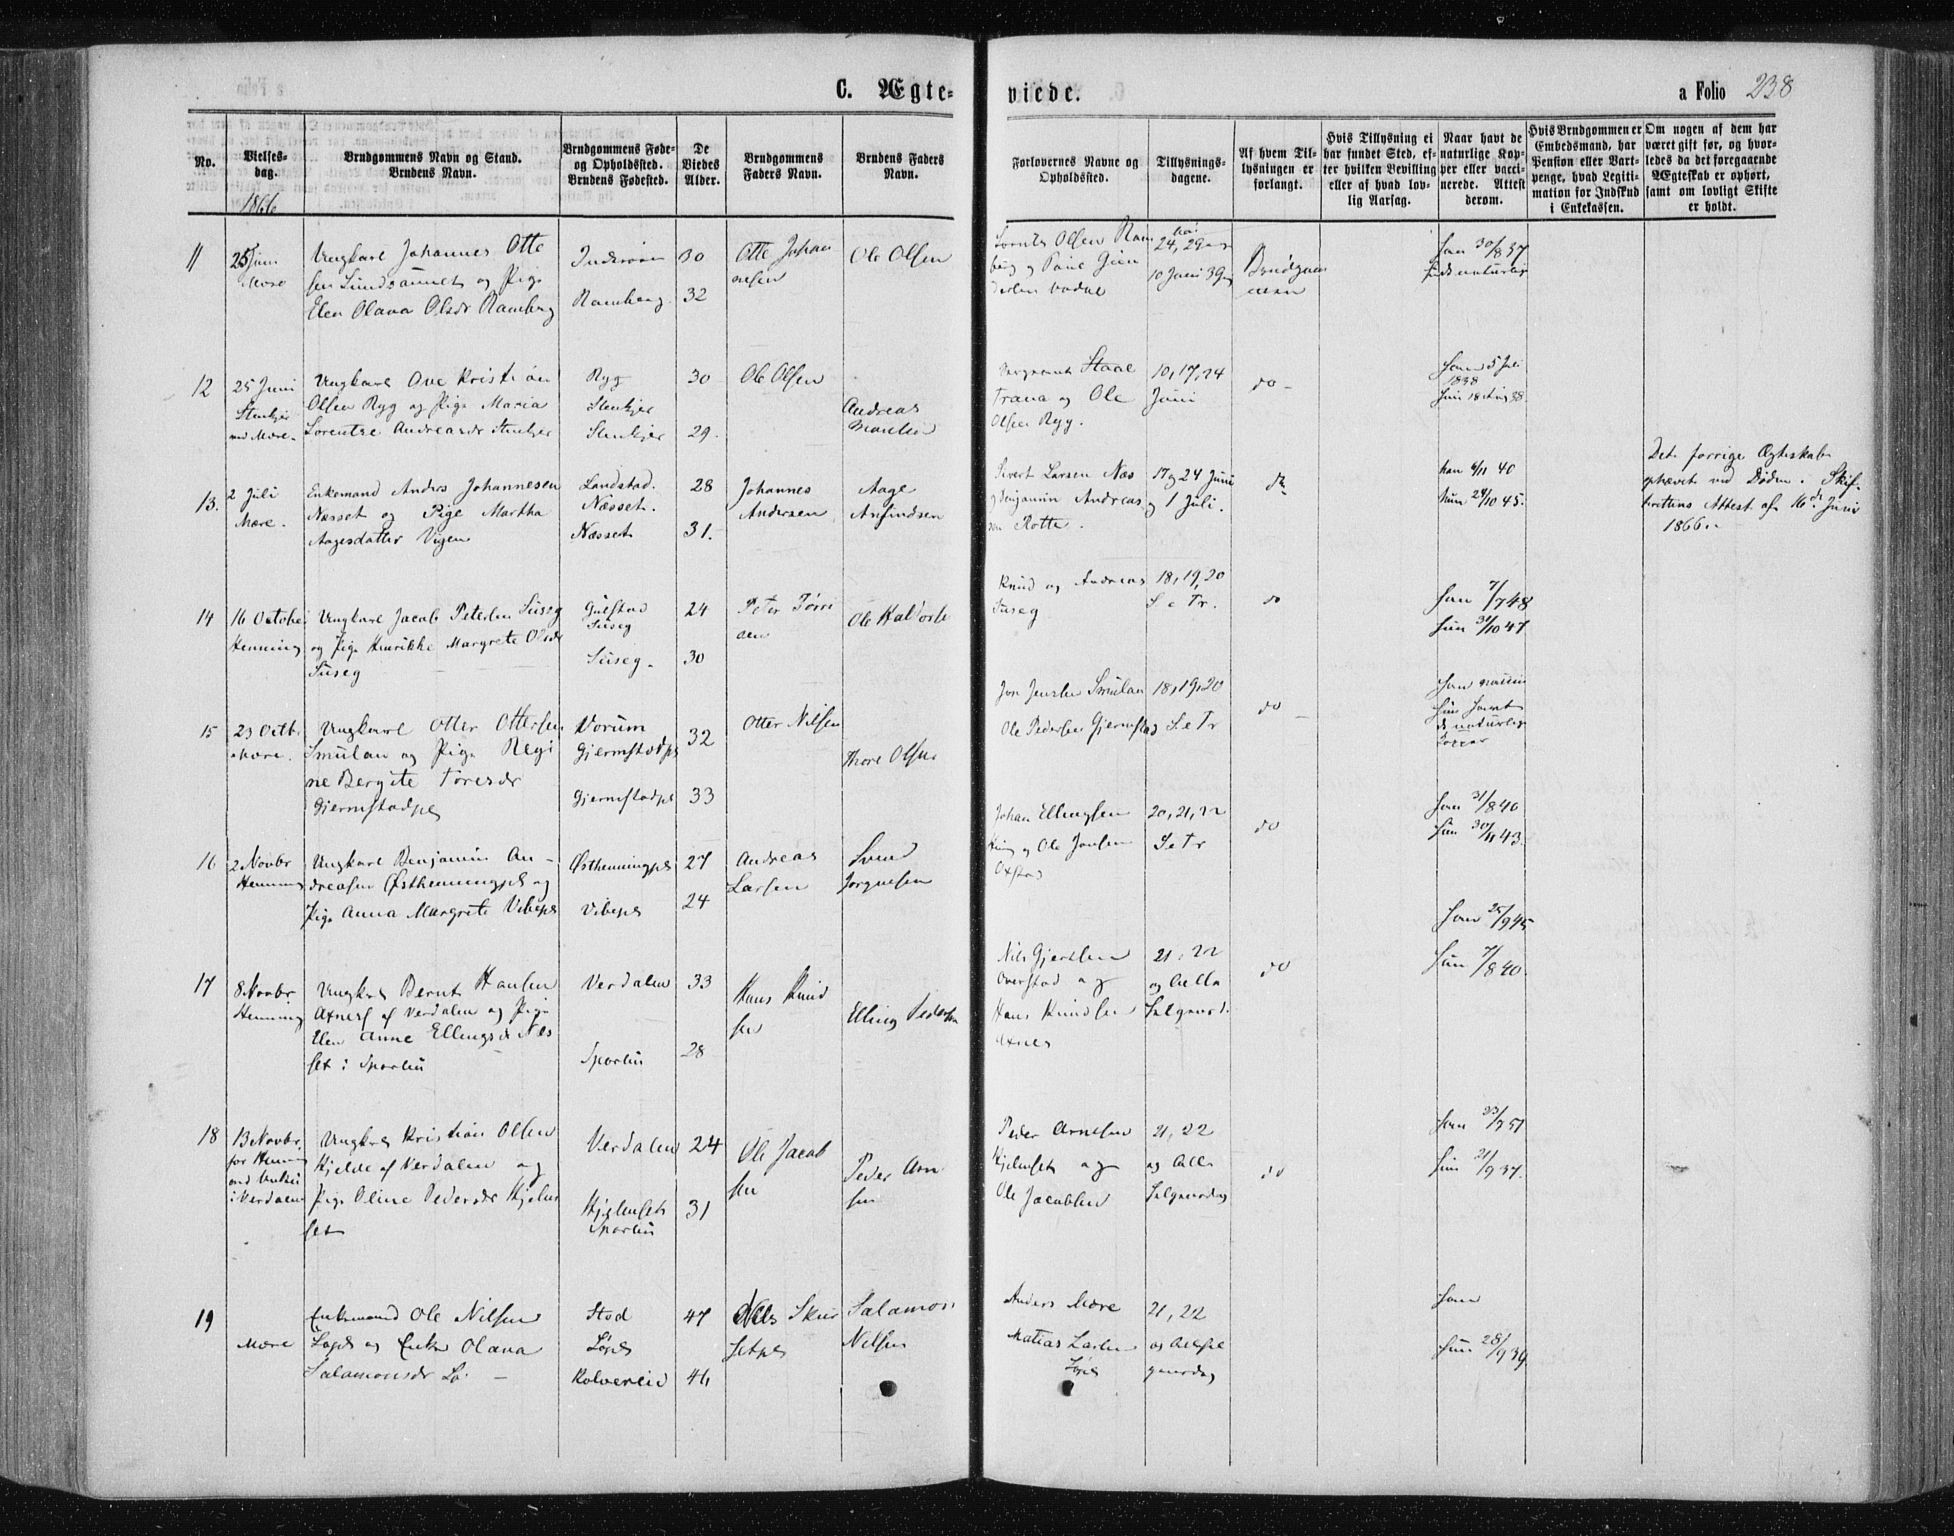 C. Ægte-
viede.
a Folio 238
No.
Vielses-
dag.
1866
Brudgommens Navn og Stand.
Brudens Navn.
Brudgommens Føde-
og Opholdssted.
Brudens Fødested.
De
Viedes
Alder.
Brudgommens
Faders Navn.
Brudens Faders
Navn.
Forlovernes Navne og
Opholdssted.
Tillysnings-
dagene.
Af hvem Til-
lysningen er
forlangt.
Hvis Tillysning ei
har fundet Sted, ef-
ter hvilken Bevilling
eller af hvad lov-
lig Aarsag.
Naar havt de
naturlige Kop-
per eller vacci-
nerede. Attest
derom.
Hvis Brudgommen er
Embedsmand, har
Pension eller Vart-
penge, hvad Legiti-
mation for Indskud
i Enkekassen.
Om nogen af dem har
været gift før, og hvor-
ledes da det foregaaende
Ægteskab er ophørt,
samt om lovligt Skifte
er holdt.
11
25 Juni
Mære
Ungkarl Johannes Otte
sen Sundsaunet og Pige
Elen Olava Olsdr Ramberg
Inderøen
Ramberg
30
32
Otte Johan
nesen
Ole Olsen
Olsen Ram
berg og
24, 29
10 Juni
Brudgom
men
Han 30/8 37
naturlig
12
25 Juni
Stenkjer
ved Mære
Ungkarl Ove Kristian
Olsen Ryg og Pige Maria
Sorentse Andreasdr Stenkjer
Ryg
Stenkjer
Stenkjer
30
29.
Ole Olsen
Andreas
Staal
Trana og Ole
Olsen Ryg.
10, 17, 24
Juni
do -
Han 5 Juli
1838
Hun 18 Aug 38
13.
2 Juli
Mære.
Enkemand Anders Johannesen
Næsset og Pige Martha
Aagesdatter Vigen
Landstad.
Næsset.
Næsset
28
31.
Johannes
Andersen
Aage
Anfindsen
Sivert Larsen Næs
og Benjamin Andreas
sen Rotte.
17 og 24 Juni
og 1 Juli.
do
Han 6/11 40
Hun 28/10 45.
Det forrige Ægteskab
ophævet ved Døden. Skif-
terettens Attest af 16d Juni
1866.
14
16 October
Henning
Ungkarl Jacob Petersen Suseg
og Pige Henrikke Margrete Olsdr
Suseg
Gulstad
Suseg
Suseg.
24
30
Peter
sen
Ole Haldors
Knud og Andreas
Suseg
18, 19, 20
S e Tr.
do
Han 7/7 48
Hun 31/10 47
15
23 Octbr
Mære.
Ungkarl Otter Ottersen
Smulan og Pige Regi
ne Bergite Toresdr
Gjermstadpl
Vorum
Gjermstadpl
Gjermstadpl
32
33
Otter Nilsen
Thore Olsen
Jon Jensen Smulan
Ole Pedersen Gjermstad
18, 19, 20
S e Tr
do
Han
Hun havt
de naturlige
Kopper
16
2 Novbr
Henning
Ungkarl Benjamin An-
dreasen Østhenningpl og
Pige Anna Margrete Vibepl
Østhenningpl
Vibepl
27
24
Andreas
Larsen
Svend
Jørgensen
Johan Ellingsen
og Ole Jonsen
Oxstad
20, 21, 22
S e Tr
do
Han 31/8 40
Hun 30/11 43.
17
8 Novbr
Henning
Ungkrl Bernt Hansen
Axnes af Verdalen og Pige
Elen Anne Ellingsdr Nes
set i Sparbu
Verdalen
Sparbu
33
28
Hans Knud
sen
Elling Pedersen
Nils Gjertsen
Overstad og
Hans Knudsen
Axnes
21, 22
og Alle
Helgensd.
do
Han 25/9 45
Hun 7/8 40.
18
13 Novbr
for Henning
i Verdalen
Ungkrl Kristian Olsen
Kjelde af Verdalen og
Pige Oline Pedersdr Kjelus
set
Verdalen
Kjelusset
Sparbu
24
31
Ole Jacob
sen
Peder Arn
sen
Peder Arnesen
Kjelusset og
Ole Jacobsen
21, 22
og Alle
Helgensdag
do
Han 23/7 51
Hun 21/9 37.
19
Mære
Enkemand Ole Nilsen
Løpl og Enke Olava
Salamonsdr Lø -
Stod
Løpl
Kolvereid
47
46
Nils
setpl
Salamon
Nilsen
Anders Mære
Matias Larsen
21, 22
og Allehel
gensdag
Han
Hun 28/9 39